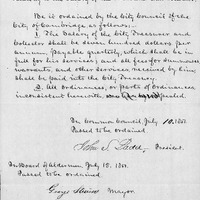 Be it ordained by the City Council of the
City of Cambridge as follows:
1. The Salary of the City Treasurer and
Collector shall be seven hundred dollars per
annum, payable quarterly, which shall be in
full for his services; and all fees for summonses,
warrants, and other services, received by him,
shall be paid into the City Treasury.
2. All ordinances, or parts of ordinances
inconsistent herewith, are repealed.
In Common Council July
Passed to be ordained.
John S. President.
In Board of Aldermen, July 15.
Passed to be ordained
George Mayor